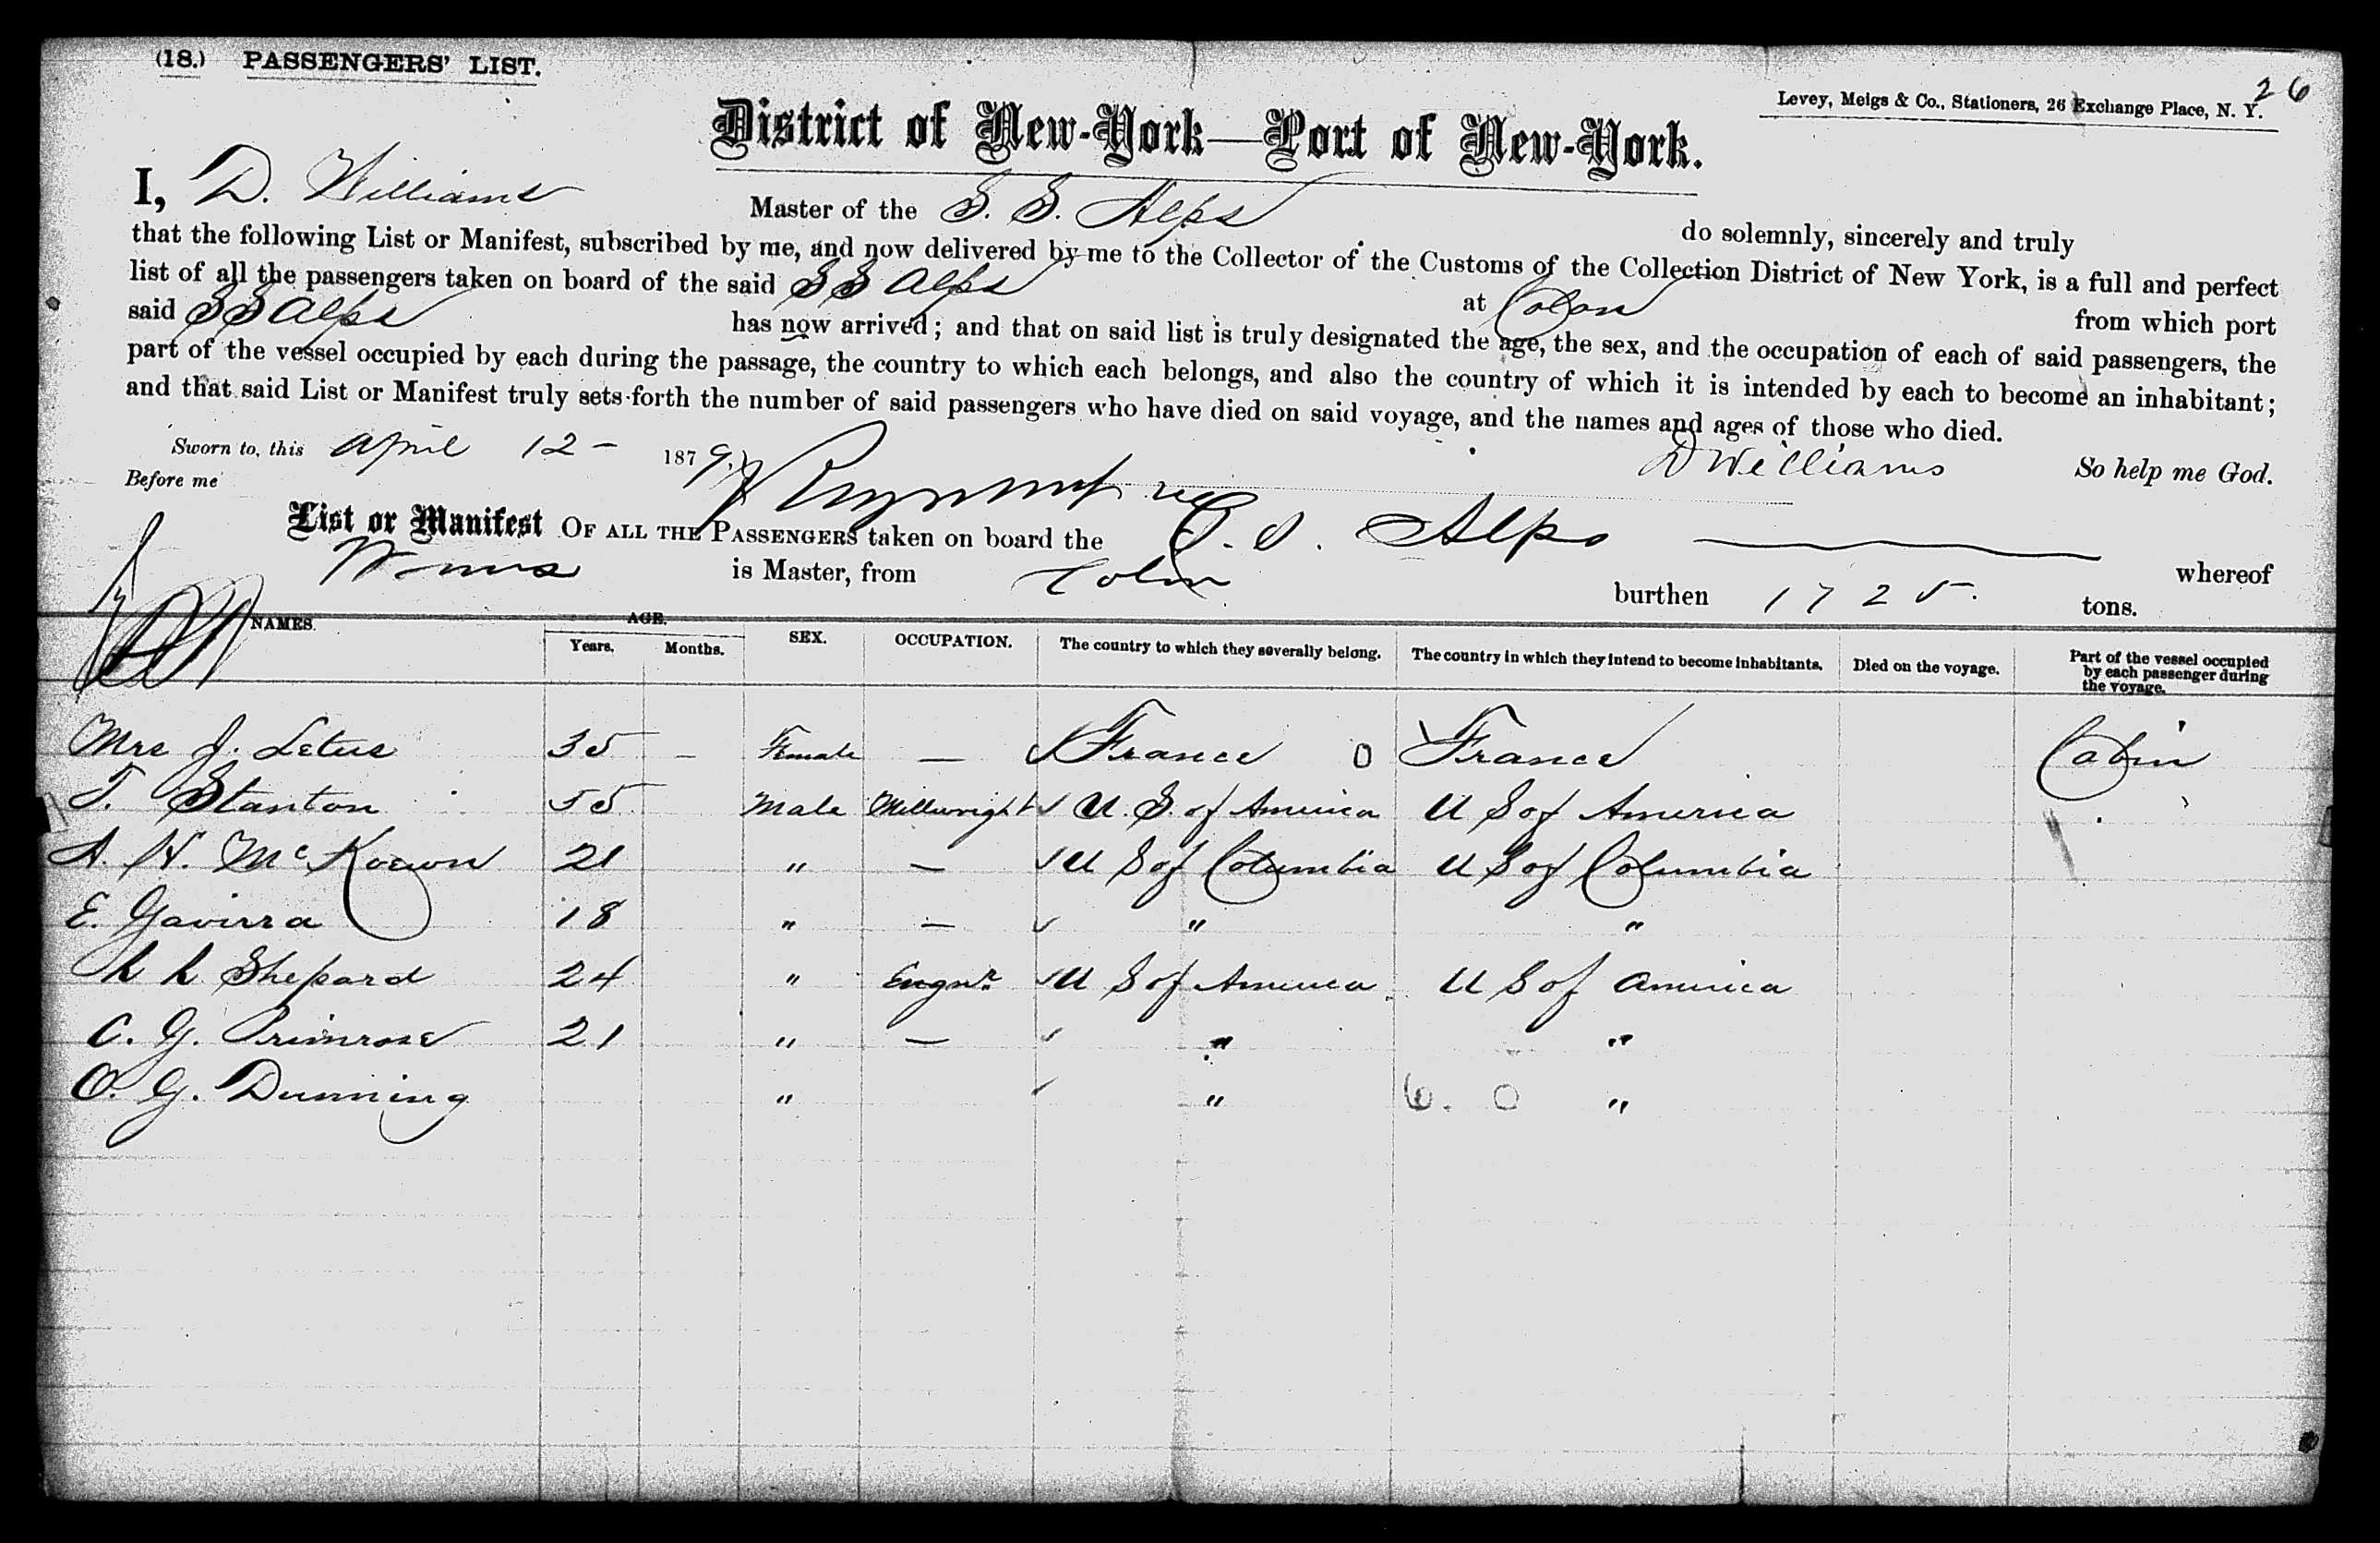 (18.) PASSENGERS' LIST.
26
Levey, Meigs & Co., Stationers, 26 Exchange Place, N. Y.
District of New-York—Port of New-York.
I, D. Williams Master of the S. S. Alps do solemnly, sincerely and truly
that the following List or Manifest, subscribed by me, and now delivered by me to the Collector of the Customs of the Collection District of New York, is a full and perfect
list of all the passengers taken on board of the said SS Alps at Colon from which port
said SS Alps has now arrived; and that on said list is truly designated the age, the sex, and the occupation of each of said passengers, the
part of the vessel occupied by each during the passage, the country to which each belongs, and also the country of which it is intended by each to become an inhabitant;
and that said List or Manifest truly sets forth the number of said passengers who have died on said voyage, and the names and ages of those who died.
Sworn to, this April 12 - 1879, D Williams So help me God.
Before me
List or Manifest OF ALL THE PASSENGERS taken on board the S. S. Alps whereof
is Master, from Colon burthen 1725. tons.
NAMES. AGE. Years. Months. SEX. OCCUPATION. The country to which they severally belong. The country in which they intend to become inhabitants. Died on the voyage. Part of the vessel occupied by each passenger during the voyage.
Mrs J. Letus 35 — Female — France 0 France Cabin
T. Stanton 55 Male Millwright U. S. of America U S of America
A. H. McKoewn 21 " — U S of Columbia U S of Columbia
E. Gavirra 18 " — " "
L L Shepard 24 " Engnr. U S of America U S of America
C. G. Primrose 21 " — " "
O. G. Dunning " " 6. 0 "